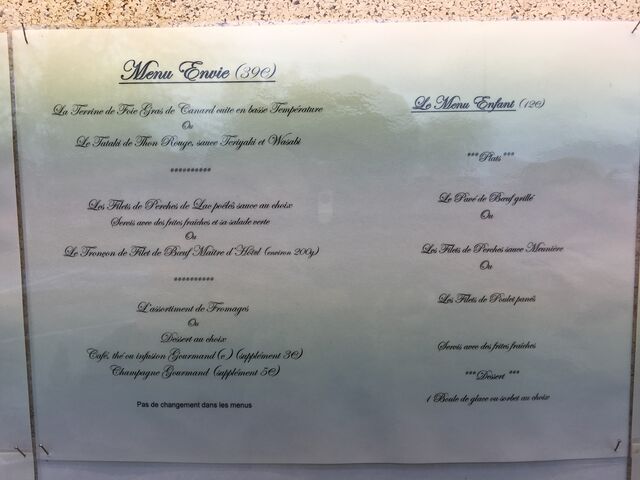 Menu Envie (39€)
La Terrine de Foie Gras de Canard cuite en basse Température
Ou
Le Tataki de Thon Rouge, sauce Teriyaki et Wasabi
**********
Les Filets de Perches de Lac poêlés sauce au choix
Servis avec des frites fraîches et sa salade verte
Ou
Le Tronçon de Filet de Bœuf Maître d'Hôtel (environ 200g)
**********
L'assortiment de Fromages
Ou
Dessert au choix
Café, thé ou infusion Gourmand(e) (supplément 3€)
Champagne Gourmand (supplément 5€)
Pas de changement dans les menus
Le Menu Enfant (12€)
***Plats ***
Le Pavé de Bœuf grillé
Ou
Les Filets de Perches sauce Meunière
Ou
Les Filets de Poulet panés
Servis avec des frites fraîches
***Dessert ***
1 Boule de glace ou sorbet au choix